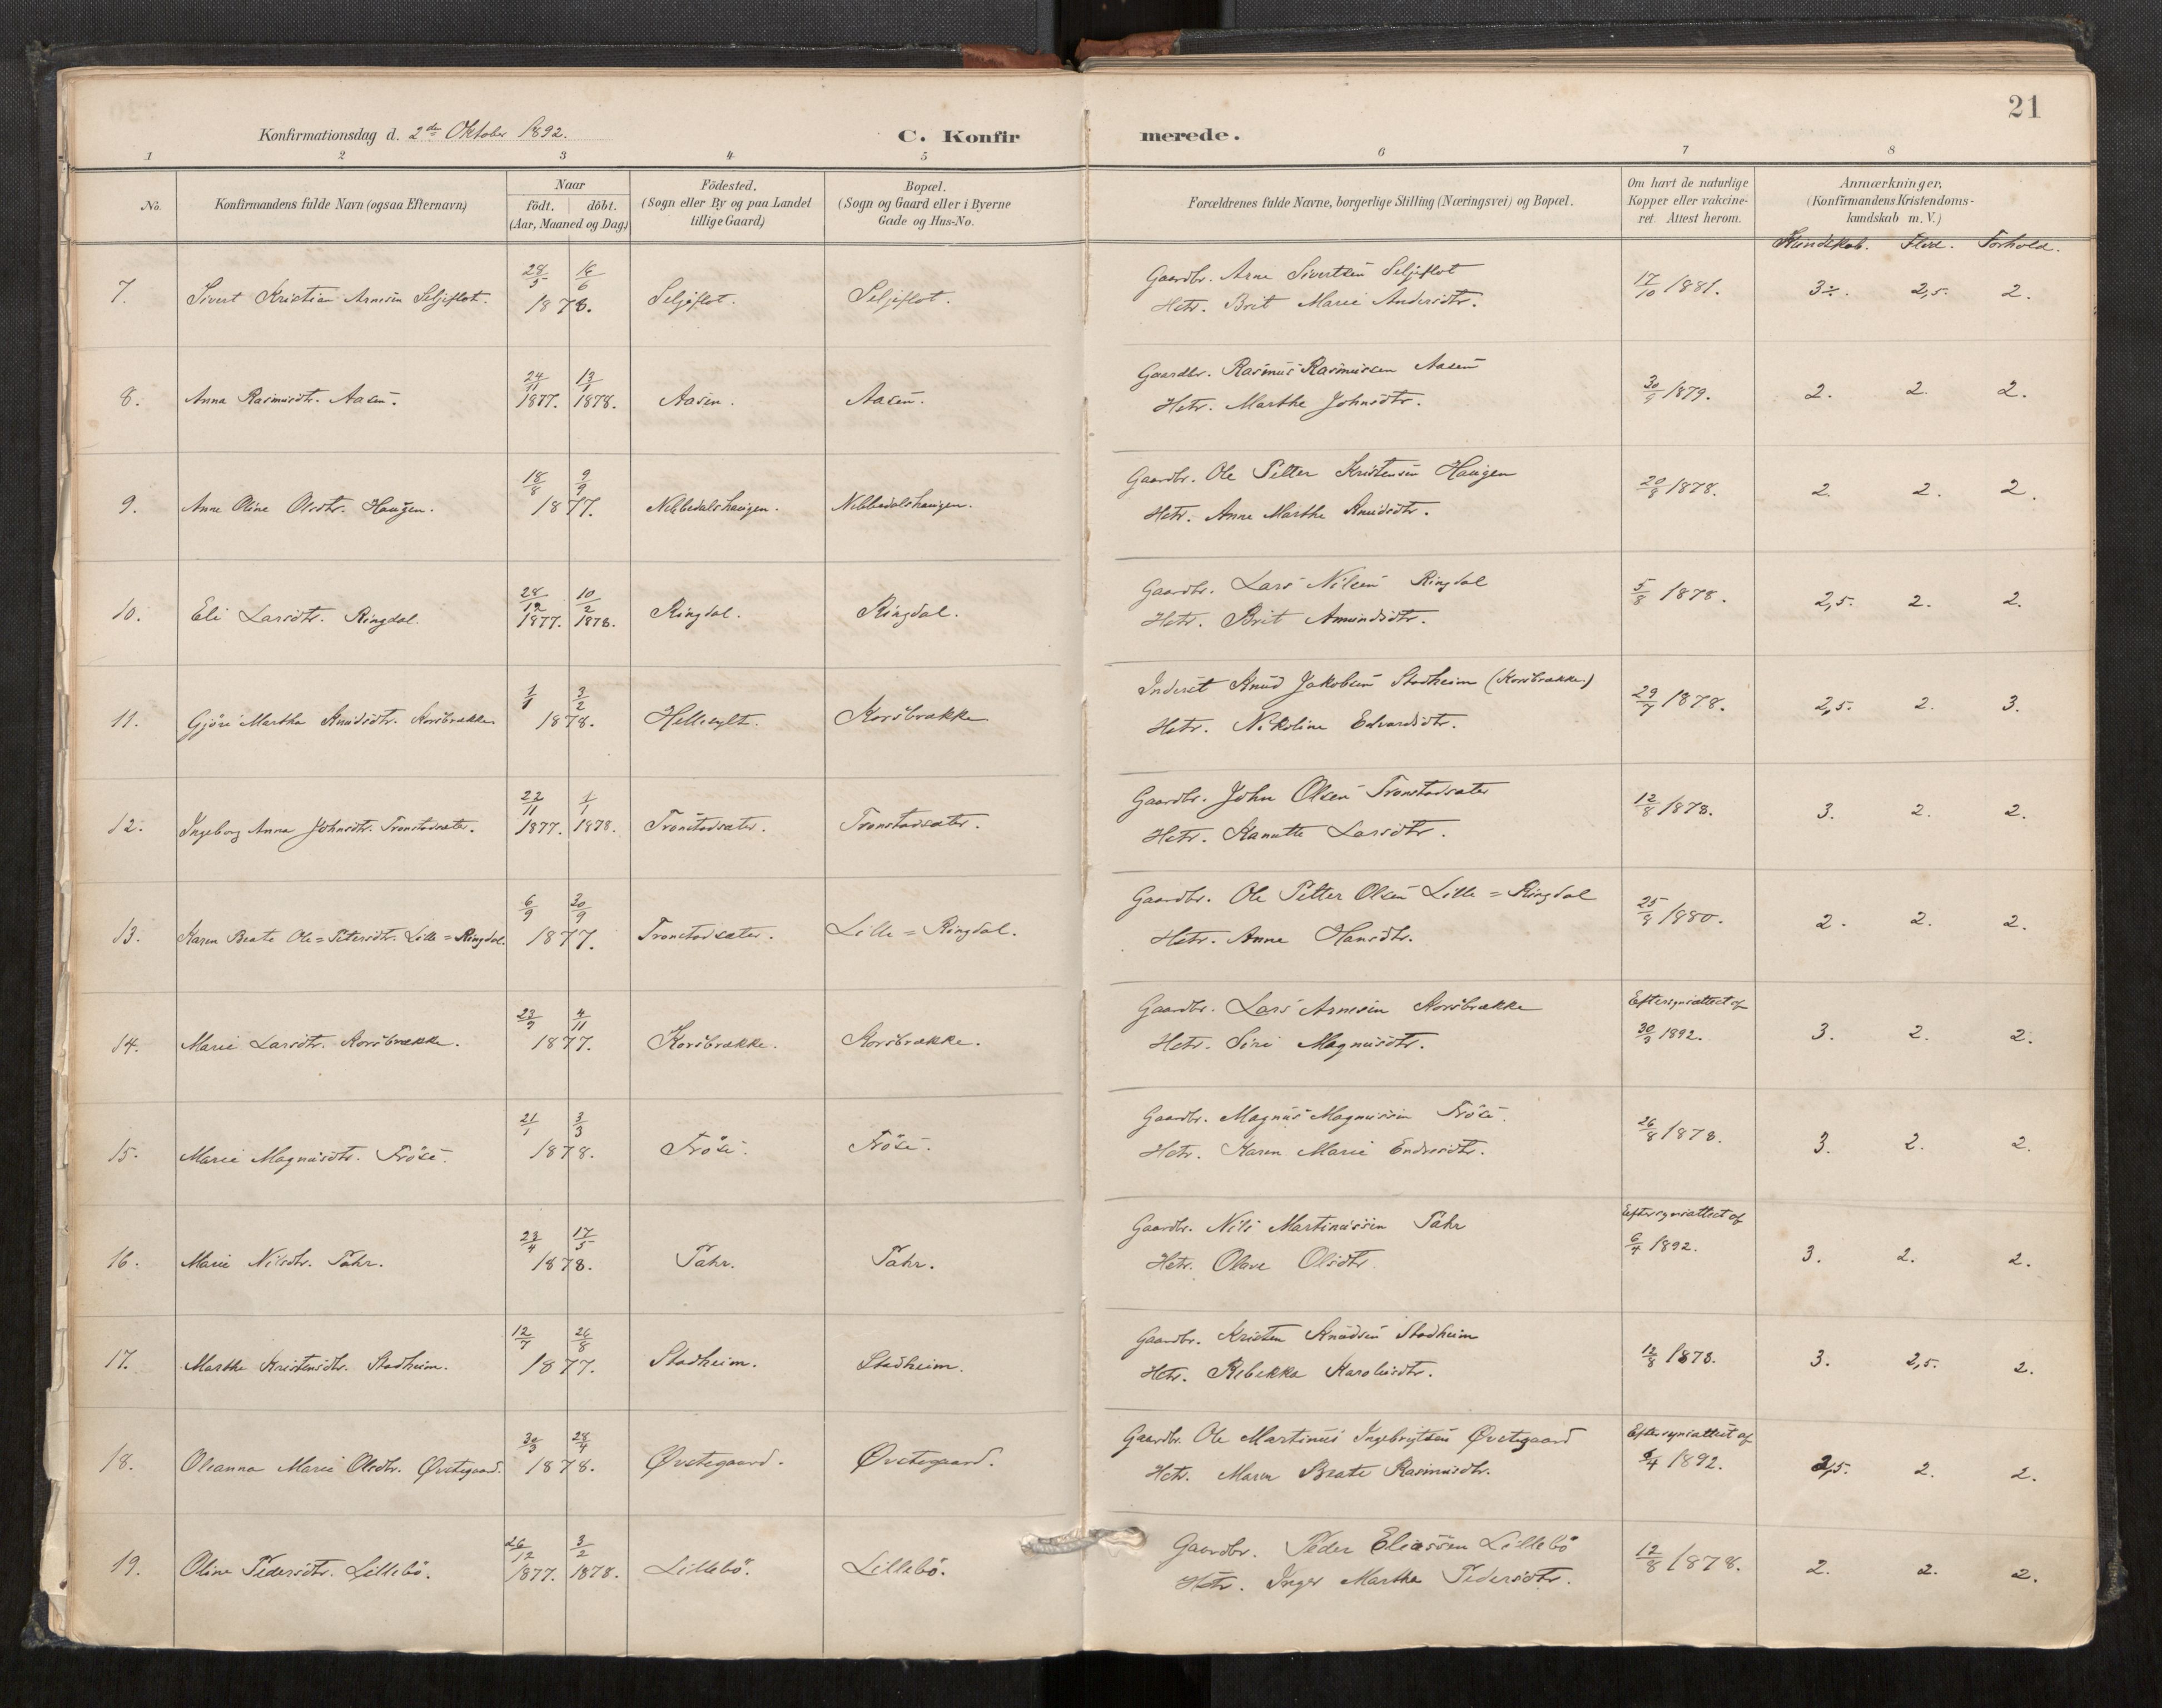 21
Konfirmationsdag d. 2den Oktober 1892.
C. Konfirmerede.
1 2 3 4 5 6 7 8
No.
Konfirmandens fulde Navn (ogsaa Efternavn)
Naar
födt. döbt.
(Aar, Maaned og Dag)
Födested.
(Sogn eller By og paa Landet
tillige Gaard)
Bopæl.
(Sogn og Gaard eller i Byerne
Gade og Hus-No.
Forældrenes fulde Navne, borgerlige Stilling (Næringsvei) og Bopæl.
Om havt de naturlige
Kopper eller vakcine-
ret. Attest herom.
Anmærkninger,
(Konfirmandens Kristendoms-
kundskab m. V.)
Kundskab. Flid. Forhold.
28/5 16/6
Gaardbr. Arne Sivertsen Seljeflot
7. Sivert Kristian Arnesen Seljeflot. 1878. Seljeflot. Seljeflot.
Hstr. Brit Marie Andersdtr. 17/10 1881. 3÷. 2,5. 2.
24/11 13/1
Gaardbr. Rasmus Rasmussen Aasen
8. Anna Rasmusdtr. Aasen. 1877. 1878. Aasen. Aasen.
Hstr. Marthe Johnsdtr. 30/9 1879. 2. 2. 2.
18/8 9/9
Gaardbr. Ole Petter Kristensen Haugen
9. Anne Oline Olsdtr. Haugen. 1877. Nebbedalshaugen. Nebbedalshaugen.
Hstr. Anne Marthe Knudsdtr. 20/8 1878. 2. 2. 2.
28/12 10/2
Gaardbr. Lars Nilsen Ringdal
10. Eli Larsdtr. Ringdal. 1877. 1878. Ringdal. Ringdal.
Hstr. Brit Amundsdtr. 5/8 1878. 2,5. 2. 2.
1/1 3/2
Inderst Knud Jakobsen Stadheim (Korsbrække)
11. Gjöre Martha Knudsdtr. Korsbrække 1878. Hellesylt. Korsbrække
Hstr. Nikoline Edvardsdtr. 29/7 1878. 2,5. 2. 3.
22/11 1/1
Gaardbr. John Olsen Tronstadsæter
12. Ingeborg Anna Johnsdtr. Tronstadsæter. 1877. 1878. Tronstadsæter. Tronstadsæter.
Hstr. Kanutte Larsdtr. 12/8 1878. 3. 2. 2.
6/9 30/9
Gaardbr. Ole Petter Olsen Lille=Ringdal
13. Karen Beate Ole=Petersdtr. Lille=Ringdal. 1877. Tronstadsæter. Lille=Ringdal.
Hstr. Anne Hansdtr. 25/9 1880. 2. 2. 2.
23/9 4/11
Gaardbr. Lars Arnesen Korsbrække
14. Marie Larsdtr. Korsbrække. 1877. Korsbrække. Korsbrække.
Hstr. Siri Magnusdtr. Eftersynsattest af 30/9 1892. 3. 2. 2.
21/1 3/3
Gaardbr. Magnus Magnussen Fröse.
15. Marie Magnusdtr. Fröse. 1878. Fröse. Fröse.
Hstr. Karen Marie Endresdtr. 26/8 1878. 3. 2. 2.
23/4 17/5
Gaardbr. Nils Martinussen Tahr
16. Marie Nilsdtr. Tahr. 1878. Tahr. Tahr.
Hstr. Olave Olsdtr. Eftersynsattest af 6/4 1892. 3. 2. 2.
12/7 26/8
Gaardbr. Kristen Knudsen Stadheim
17. Marthe Kristensdtr. Stadheim. 1877. Stadheim. Stadheim.
Hstr. Rebekka Karolusdtr. 12/8 1878. 3. 2,5. 2.
30/3 28/4
Gaardbr. Ole Martinus Ingebrigtsen Øvstegaard
18. Oleanna Marie Olsdtr. Øvstegaard. 1878. Øvstegaard. Øvstegaard.
Hstr. Maren Beate Rasmusdtr. Eftersynsattest af 6/4 1892. 2,5. 2. 2.
26/12 3/2
Gaardbr. Peder Eliassen Lillebö
19. Oline Pedersdtr. Lillebö. 1877. 1878. Lillebö. Lillebö.
Hstr. Inger Marthe Pedersdtr. 12/8 1878. 2. 2. 2.